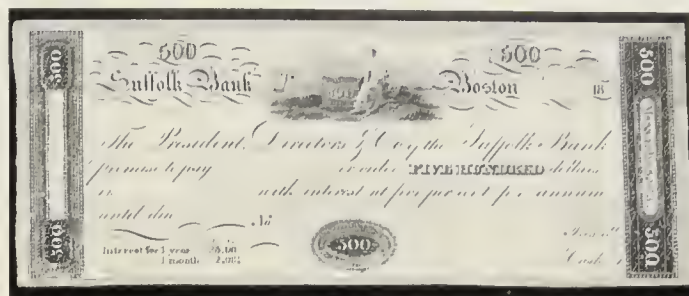 500 500
500 Suffolk Bank Boston 18 500
The President, Directors & Co. of the Suffolk Bank
promise to pay or order FIVE HUNDRED dollars
in with interest at five per cent per annum
until due No
Interest for 1 year 25,00
1 month 2,08⅓
500 500 500
Cash